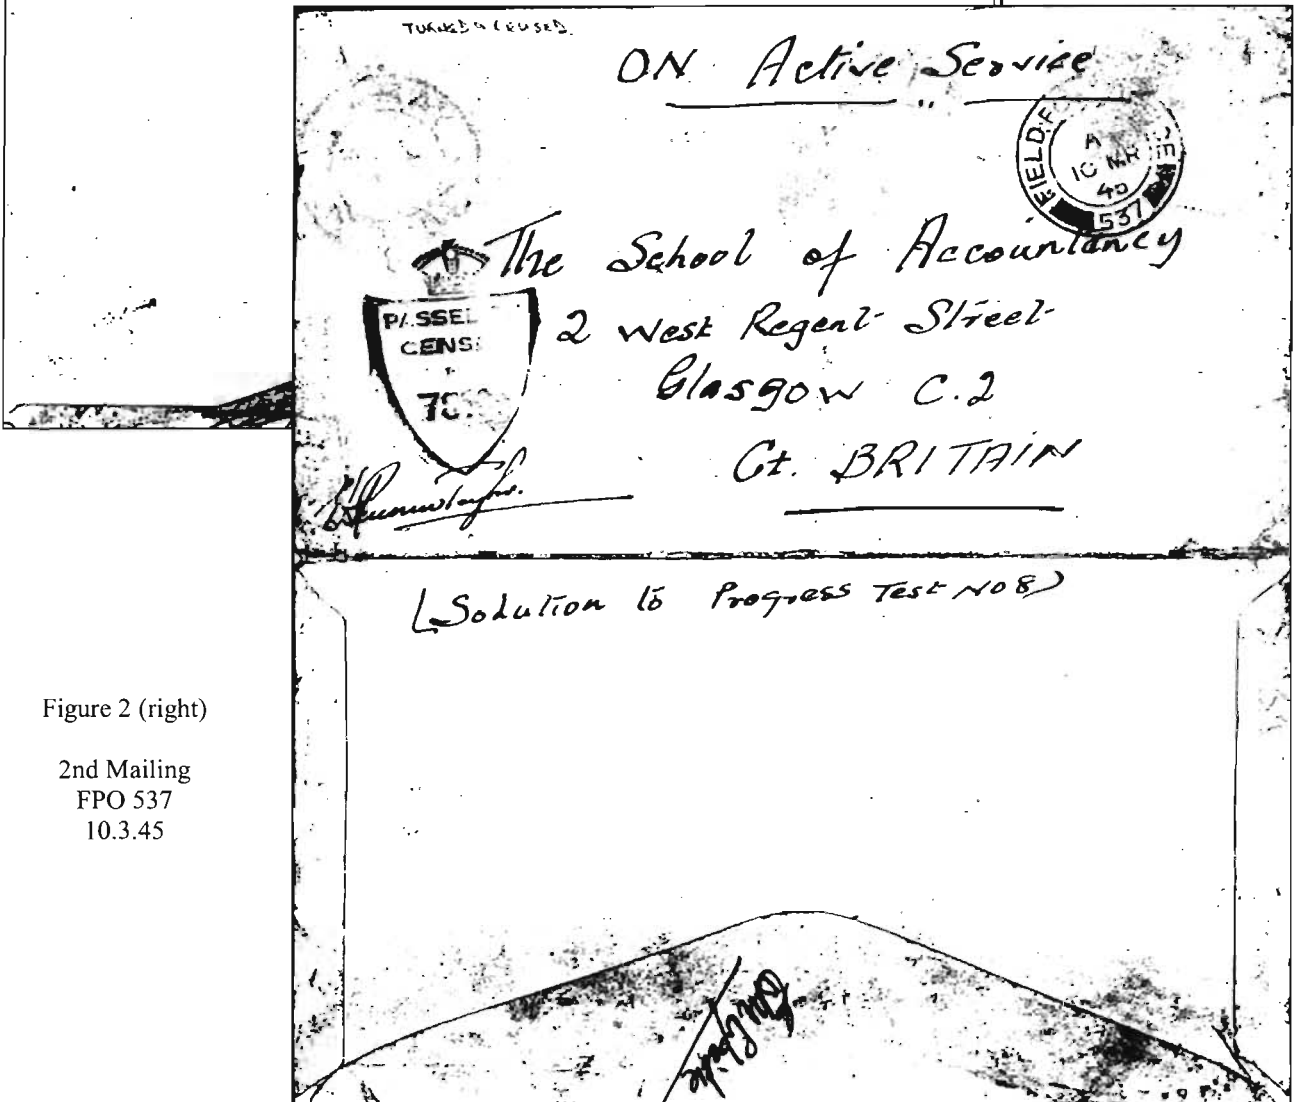 TURNED & REUSED.
ON Active Service
FIELD
A
10 MR
45
537
The School of Accountancy
2 West Regent Street
Glasgow C.2
Gt. BRITAIN
PASSED
CENS
(Solution to Progress Test No 8)
Figure 2 (right)
2nd Mailing
FPO 537
10.3.45